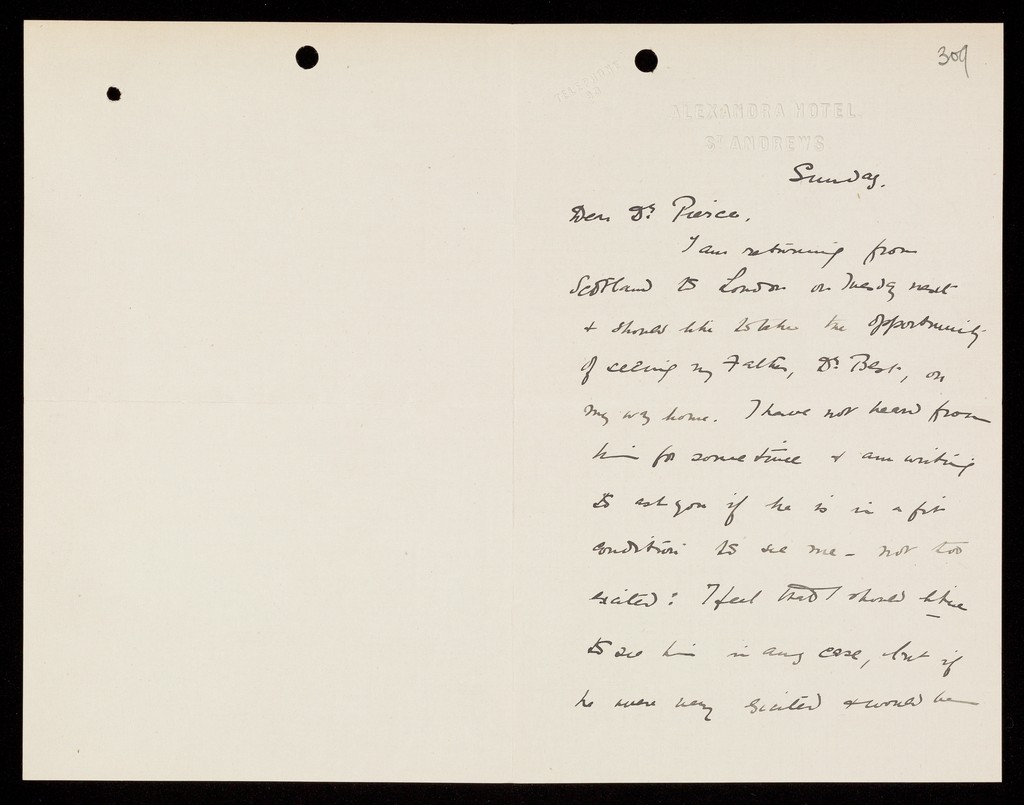 309
TELEPHONE
ALEXANDRA HOTEL
ST ANDREWS
Sunday.
Dear Dr Pierce,
I am returning from
Scotland to London on Tuesday next
& should like to take the opportunity
of seeing my Father, Dr Best, on
my way home. I have not heard from
him for some time & am writing
to ask you if he is in a fit
condition to see me - not too
excited: I feel that I should like
to see him in any case, but if
he were very excited & would be